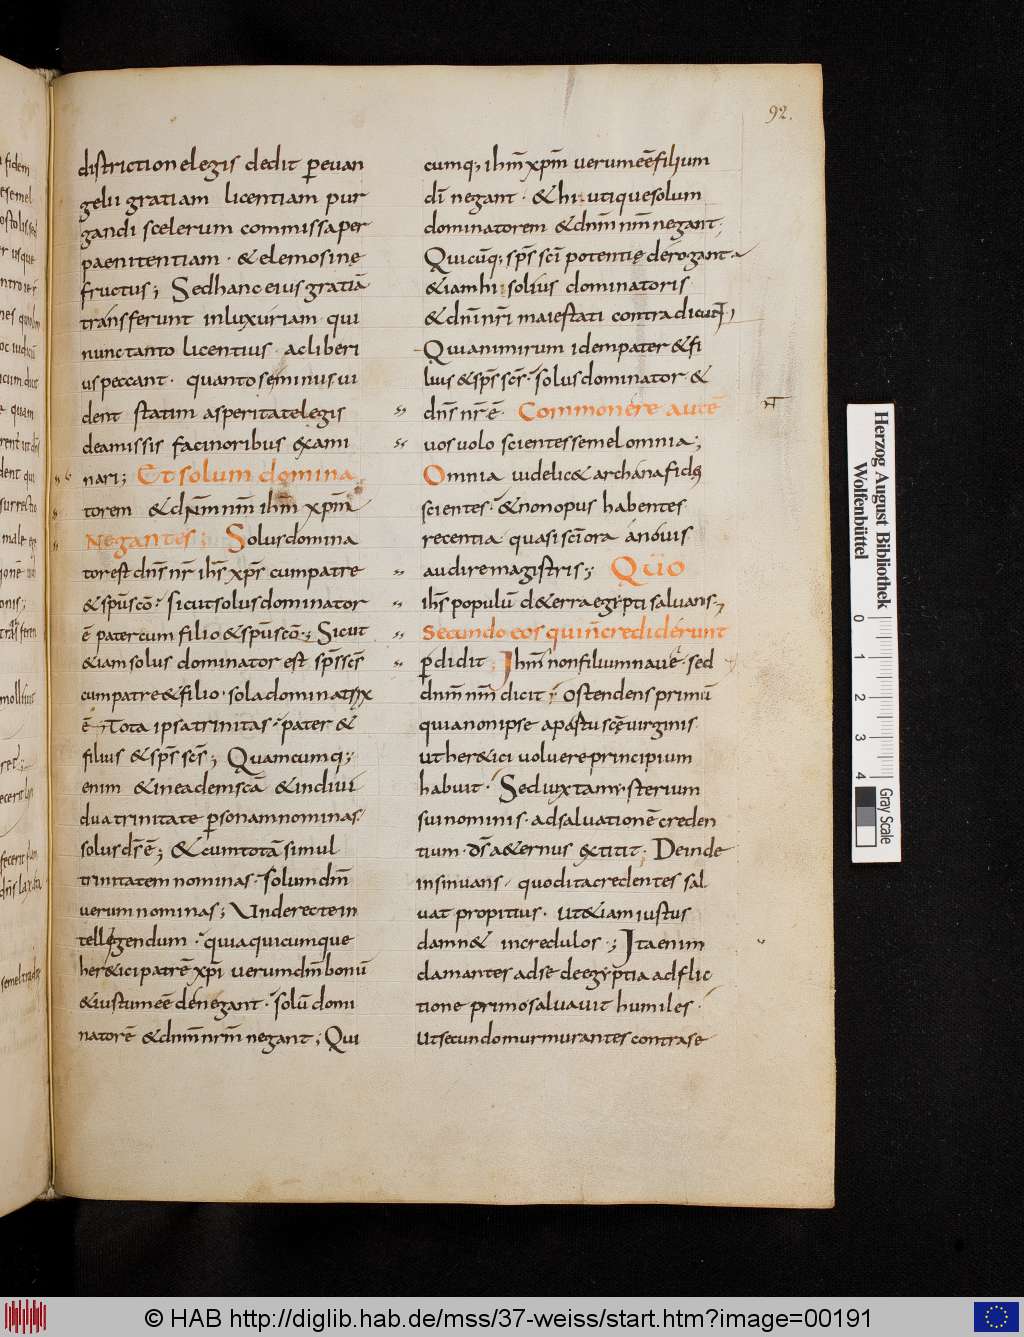 92.
districtione legis dedit ꝑ euan
gelii gratiam licentiam pur
gandi scelerum commissa per
paenitentiam · & elemosinę
fructus; Sed hanc eius gratiā
transferunt in luxuriam qui
nunc tanto licentius · ac liberi
us peccant · quanto se minus ui
dent statim asperitate legis
de amissis facinoribus exami
nari; Et solum domina
torem & dn̄m nr̄m ihm̄ xpm̄
Negantes; Solus domina
tor est dn̄s nr̄ ihs̄ xps̄ cum patre
& spū scō · sicut solus dominator
ē pater cum filio & spū scō; Sicut
& iam solus dominator est sps̄ scs̄
cum patre & filio · sola dominatrix
ē Tota ipsa trinitas · pater &
filius & sps̄ scs̄; Quamcumq;
enim & in eadem scā & indiui
dua trinitate ꝑsonam nominas
solus ds̄ ē; & cum totā simul
trinitatem nominas · solum dm̄
uerum nominas; Unde recte in
tellegendum · quia quicumque
her&ici patrē xpi uerum dm̄ bonū
& iustum eē denegant · solū domi
natorē & dnm̄ nrm̄ negant; Qui
cumq; ihm̄ xpm̄ uerum eē filium
dī negant · & hi utique solum
dominatorem & dnm̄ nm̄ negant;
Quicūq; sps̄ scī potentię derogant
& iam hi solius dominatoris
& dnī nrī maiestati contradicunt;
Quia nimirum idem pater & fi
lius & sps̄ scs̄ · solus dominator &
dns̄ nr̄ ē Commonere autē
uos uolo scientes semel omnia;
Omnia uidelic& archana fidei
scientes · & non opus habentes
recentia quasi scīora a nouis
audire magistris; Quo
ihs̄ populū d& erra egypti saluans
Secundo eos qui n̄ crediderunt
ꝑdidit; Ihm̄ non filium naue · sed
dnm̄ nm̄ dicit; ostendens primū
quia non ipse a partu scē uirginis
ut her&ici uoluere principium
habuit · Sed iuxta mysterium
sui nominis · ad saluationē creden
tium · ds̄ a&ernus extitit; Deinde
insinuans quod ita credentes sal
uat propitius · ut & iam iustus
damn& incredulos; Ita enim
clamantes ad se de egyptia adflic
tione primo saluauit humiles ·
Ut secundo murmurantes contra se
Herzog August Bibliothek
Wolfenbüttel
0 1 2 3 4
Gray Scale
© HAB http://diglib.hab.de/mss/37-weiss/start.htm?image=00191